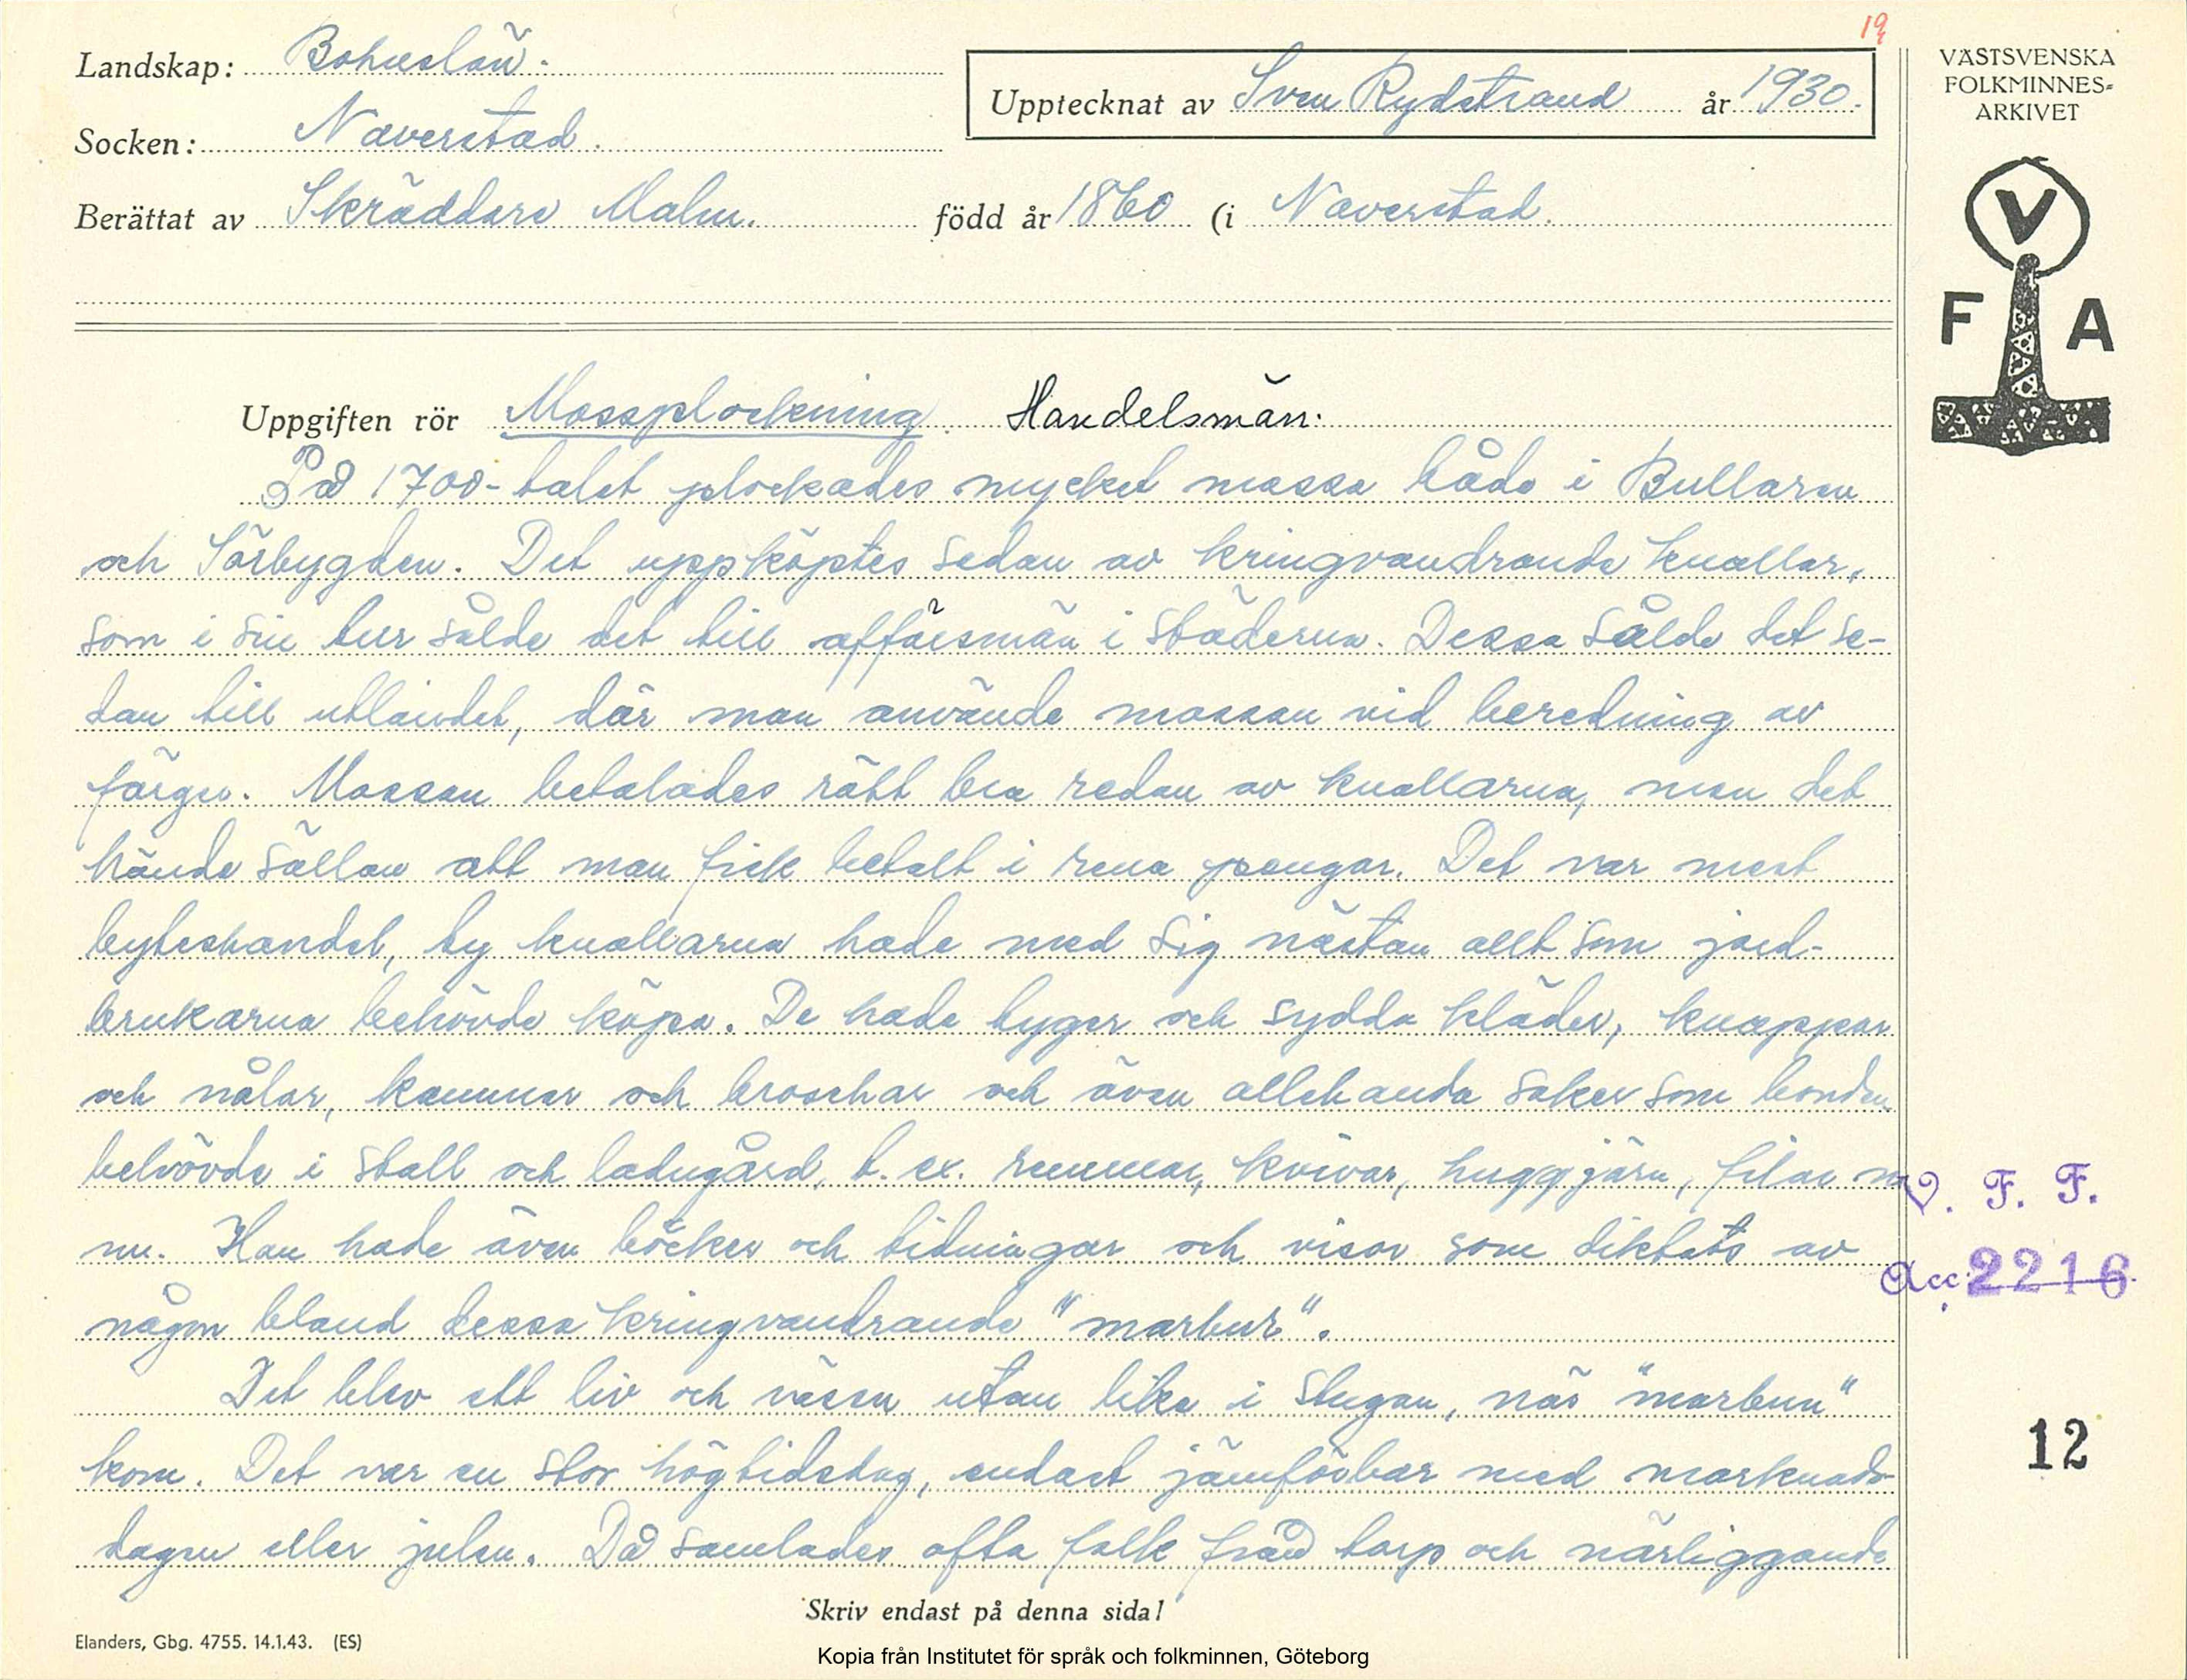 19
Landskap: Bohuslän.
Upptecknat av Sven Rydstrand år 1930.
Socken: Naverstad.
Berättat av Skräddare Malm. född år 1860 (i Naverstad.
VÄSTSVENSKA
FOLKMINNES=
ARKIVET
V
F A
Uppgiften rör Mossplockning. Handelsmän.
På 1700-talet plockades mycket mossa både i Bullaren
och Sörbygden. Det uppköptes sedan av kringvandrande knallar,
som i sin tur sålde det till affärsmän i städerna. Dessa sålde det se-
dan till utlandet, där man använde mossan vid beredning av
färger. Mossan betalades rätt bra redan av knallarna, men det
hände sällan att man fick betalt i rena pengar. Det var mest
byteshandel, ty knallarna hade med sig nästan allt som jord-
brukarna behövde köpa. De hade tyger och sydda kläder, knappar
och nålar, kammar och broschar och även allehanda saker som bonden
behövde i stall och ladugård, t. ex. remmar, knivar, huggjärn, filar m
m. Han hade även böcker och tidningar och visor som diktats av
någon bland dessa kringvandrande "marbur".
Det blev ett liv och väsen utan like i stugan, när "marbun"
kom. Det var en stor högtidsdag, endast jämförbar med marknads-
dagen eller julen. Då samlades ofta folk från torp och närliggande
V. F. F.
Acc. 2216
12
Skriv endast på denna sida!
Elanders, Gbg. 4755. 14.1.43. (ES)
Kopia från Institutet för språk och folkminnen, Göteborg